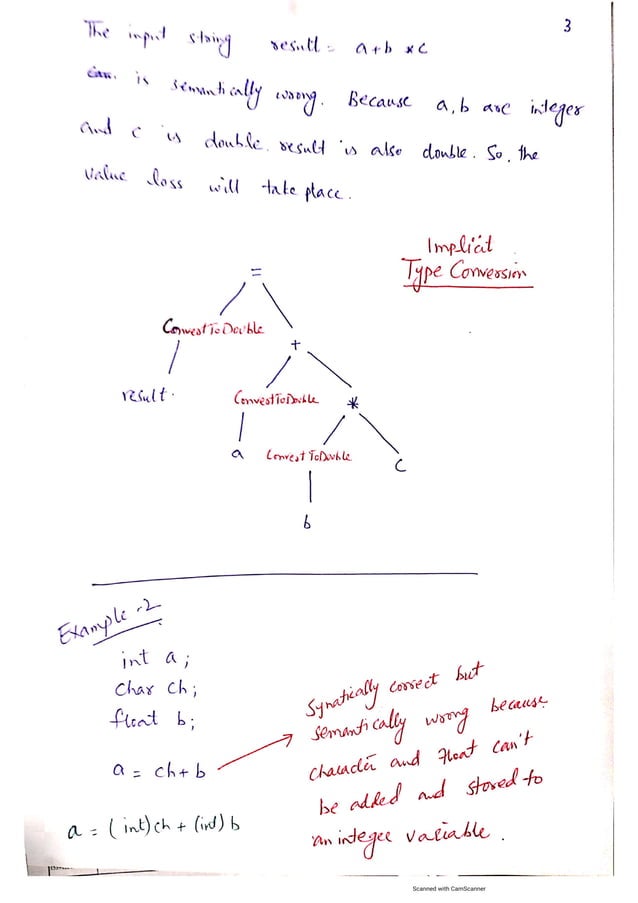 3
The input string result = a+b *c
is semantically wrong. Because a,b are integer
and c is double. result is also double. So, the
value loss will take place.
Implicit
Type Conversion
=
ConvertToDouble
+
result.
ConvertToDouble
*
a
Convert ToDouble
c
b
Example-2
int a;
char ch;
float b;
a = ch+b
a = (int)ch + (int) b
Synatically correct but
semantically wrong because
character and float can't
be added and stored to
an integer variable.
Scanned with CamScanner